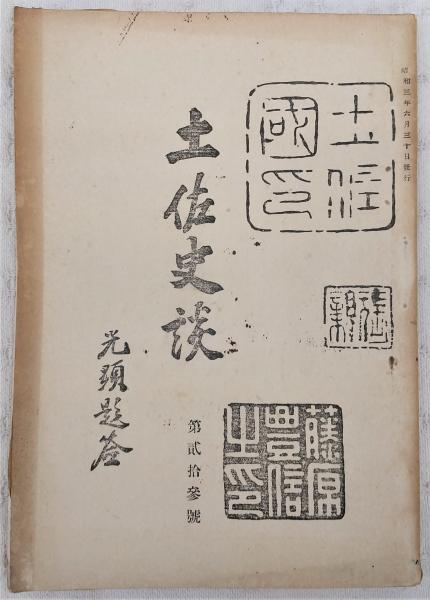 昭和三年六月三十日發行
土佐
國印
土佐史談
第貳拾參號
光顕題簽
藤原
豊信
之印